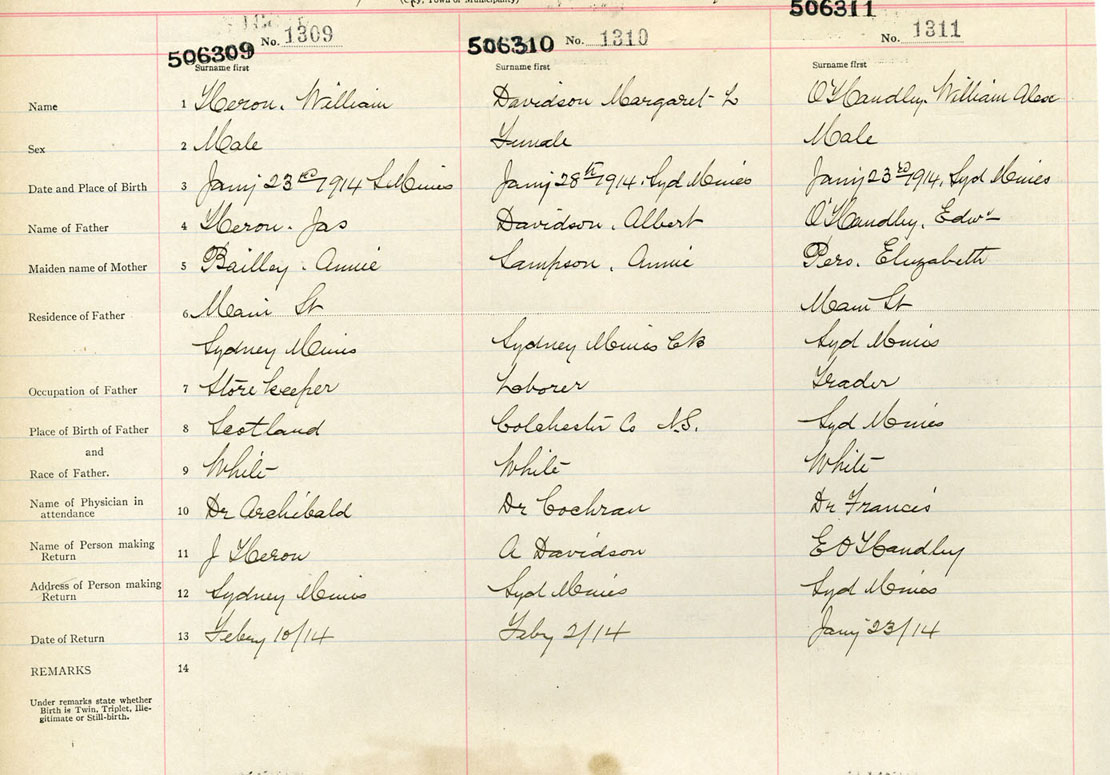 (City, Town or Municipality)
506309 No. 1309 506310 No. 1310 506311 No. 1311
Surname first Surname first Surname first
Name 1 Heron. William Davidson Margaret L O'Handley. William Alex
Sex 2 Male Female Male
Date and Place of Birth 3 Jany 23rd 1914 S Mines Jany 28th 1914. Syd Mines Jany 23rd 1914. Syd Mines
Name of Father 4 Heron. Jas Davidson. Albert O'Handley. Edwd
Maiden name of Mother 5 Bailley. Annie Sampson. Annie Elizabeth
Residence of Father 6 Main St Main St
Sydney Mines Sydney Mines CB Syd Mines
Occupation of Father 7 Store keeper Laborer Trader
Place of Birth of Father 8 Scotland Colchester Co N.S. Syd Mines
and
Race of Father. 9 White White White
Name of Physician in attendance 10 Dr Archibald Dr Cochran Dr Francis
Name of Person making Return 11 J Heron A Davidson E O'Handley
Address of Person making Return 12 Sydney Mines Syd Mines Syd Mines
Date of Return 13 Febry 10/14 Feby 2/14 Jany 23/14
REMARKS 14
Under remarks state whether
Birth is Twin, Triplet, Ille-
gitimate or Still-birth.